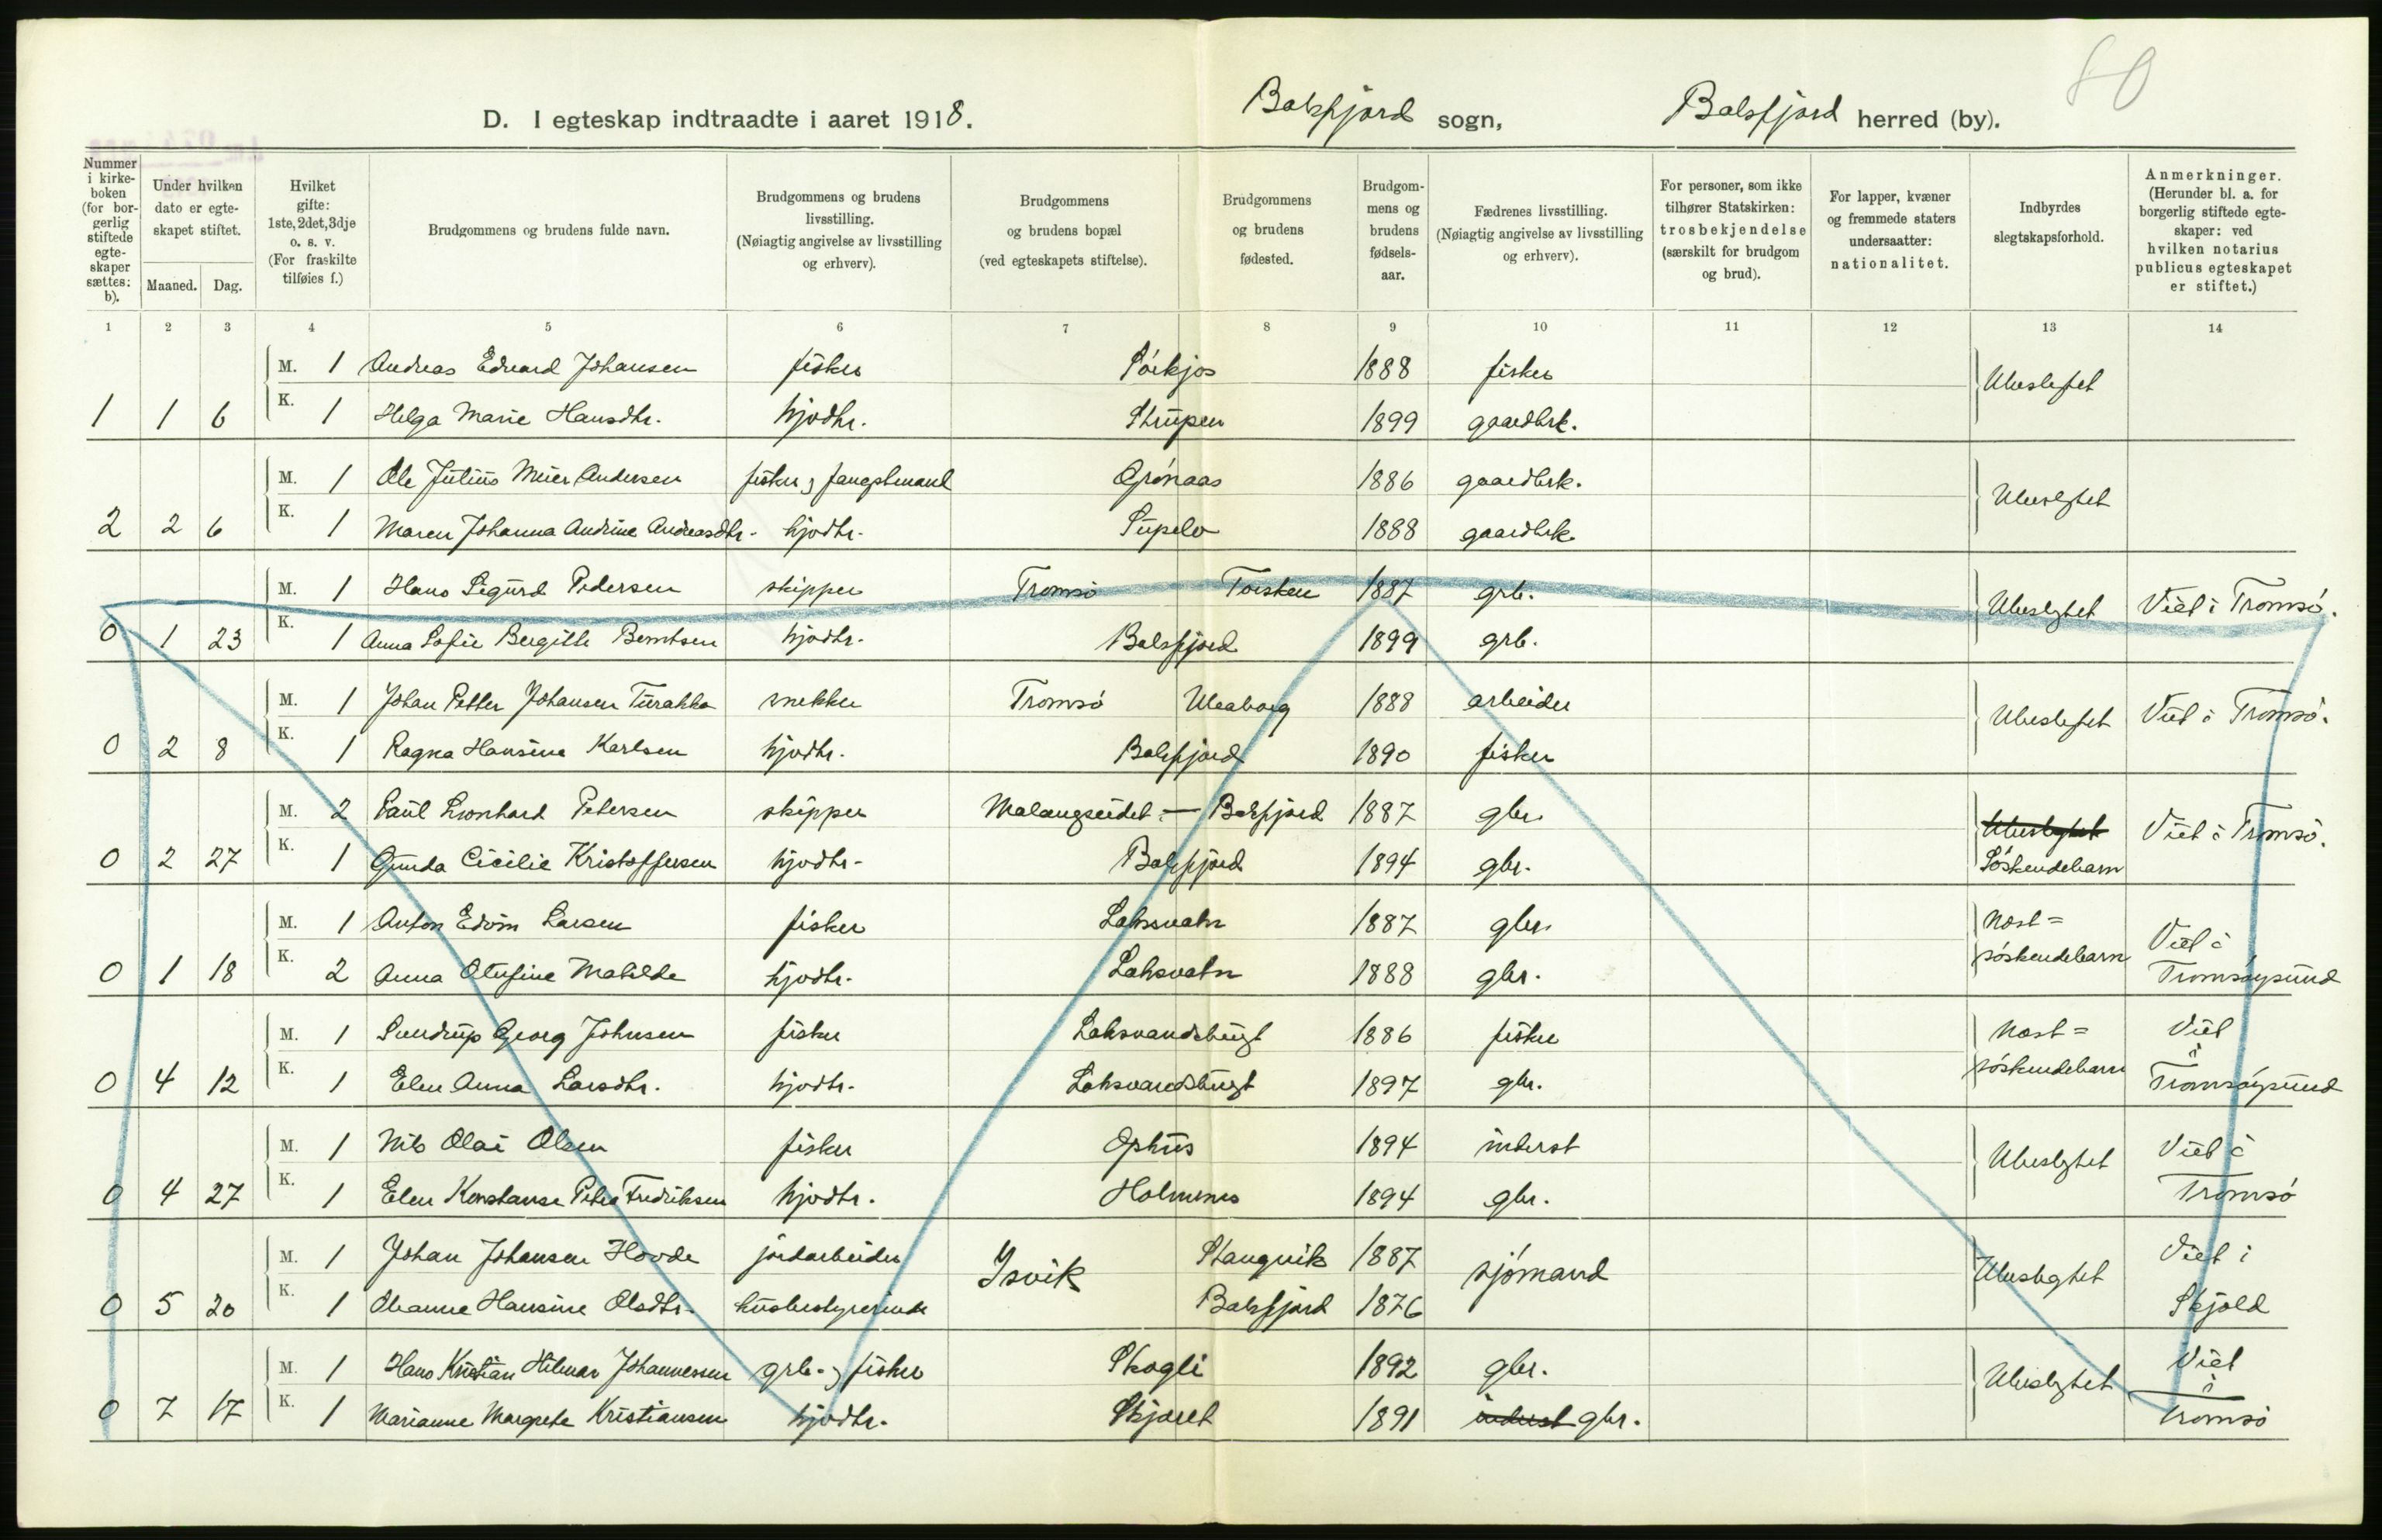 80
D. I egteskap indtraadte i aaret 1918. Balsfjord sogn, Balsfjord herred (by).
Nummer i kirkeboken (for borgerlig stiftede egteskaper sættes: b).
Under hvilken dato er egteskapet stiftet.
Maaned. Dag.
Hvilket gifte: 1ste, 2det, 3dje o. s. v. (For fraskilte tilføies f.)
Brudgommens og brudens fulde navn.
Brudgommens og brudens livsstilling. (Nøiagtig angivelse av livsstilling og erhverv).
Brudgommens og brudens bopæl (ved egteskapets stiftelse).
Brudgommens og brudens fødested.
Brudgommens og brudens fødselsaar.
Fædrenes livsstilling. (Nøiagtig angivelse av livsstilling og erhverv).
For personer, som ikke tilhører Statskirken: trosbekjendelse (særskilt for brudgom og brud).
For lapper, kvæner og fremmede staters undersaatter: nationalitet.
Indbyrdes slegtskapsforhold.
Anmerkninger. (Herunder bl. a. for borgerlig stiftede egteskaper: ved hvilken notarius publicus egteskapet er stiftet.)
1 2 3 4 5 6 7 8 9 10 11 12 13 14
M. 1 Andreas Edvard Johansen fisker Sörkjos 1888 fisker Ubeslegtet
1 1 6 K. 1 Helga Marie Hansdtr. hjdtr. Strupen 1899 gaardbrk.
M. 1 Ole Julius Meier Andersen fisker, fangstmand Grönaas 1886 gaardbrk. Ubeslegtet
2 2 6 K. 1 Maren Johanna Andrine Andreasdtr. hjdtr. 1888 gaardbrk.
M. 1 Hans Sigurd Pedersen skipper Tromsö Torsken 1887 grb. Ubeslegtet Viet i Tromsö.
0 1 23 K. 1 Anna Sofie Bergitte Berntsen hjdtr. Balsfjord 1899 grb.
M. 1 Johan Petter Johansen Turakka snekker Tromsö Uleaborg 1888 arbeider Ubeslegtet Viet i Tromsö.
0 2 8 K. 1 Ragna Hansine Karlsen hjdtr. Balsfjord 1890 fisker
M. 2 Paul Leonhard Petersen skipper Malangseidet - Balsfjord 1887 gbr. Ubeslegtet Viet i Tromsö.
0 2 27 K. 1 Gunda Cicilie Kristoffersen hjdtr. Balsfjord 1894 gbr. Söskendebarn
M. 1 Anton Edvin Larsen fisker Laksvatn 1887 gbr. Næst= Viet i
0 1 18 K. 2 Anna Olufine Matilde hjdtr. Laksvatn 1888 gbr. söskendebarn Tromsöysund
M. 1 Sverdrup Georg Johnsen fisker Laksvandsbugt 1886 fisker Næst= Viet i
0 4 12 K. 1 Elen Anna Larsdtr. hjdtr. Laksvandsbugt 1897 gbr. söskendebarn Tromsöysund
M. 1 Nils Olai Olsen fisker Ophus 1894 inderst Ubeslegtet Viet i
0 4 27 K. 1 Elen Konstanse Petra Fredriksen hjdtr. Holmenes 1894 gbr. Tromsö
M. 1 Johan Johansen Hovde jordarbeider Isvik Stangvik 1887 sjömand Ubeslegtet Viet i
0 5 20 K. 1 Hansine Olsdtr. husbestyrerinde Balsfjord 1876 Skjold
M. 1 Hans Kristian Hilmar Johannessen grb., fisker Skogli 1892 gbr. Ubeslegtet Viet i
0 7 17 K. 1 Marianne Margrete Kristiansen hjdtr. Skjæret 1891 inderst gbr. Tromsö